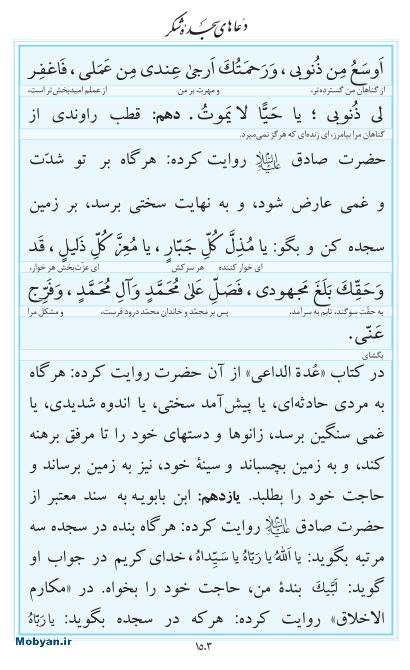 دعاهای سجدهٔ شکر
اَوسَعُ مِن ذُنوبی ، وَرَحمَتُكَ اَرجیٰ عِندی مِن عَمَلی ، فَاغفِر
از گناهان من گسترده‌تر، و مهرت بر من از عملم امیدبخش‌تر است،
لی ذُنوبی ؛ یا حَیًّا لا یَموتُ. دهم: قطب راوندی از
گناهان مرا بیامرز، ای زنده‌ای که هرگز نمی‌میرد.
حضرت صادق علیه‌السلام روایت کرده: هرگاه بر تو شدّت
و غمی عارض شود، و به نهایت سختی برسد، بر زمین
سجده کن و بگو: یا مُذِلَّ کُلِّ جَبّارٍ ، یا مُعِزَّ کُلِّ ذَلیلٍ ، قَد
ای خوار کننده هر سرکش ای عزّت‌بخش هر خوار،
وَحَقِّكَ بَلَغَ مَجهودی ، فَصَلِّ عَلیٰ مُحَمَّدٍ وَآلِ مُحَمَّدٍ ، وَفَرِّج
به حقّت سوگند، تابم به سرآمد، پس بر محمّد و خاندان محمّد درود فرست، و مشکل مرا
عَنّی.
بگشای
در کتاب «عُدة الداعی» از آن حضرت روایت کرده: هرگاه
به مردی حادثه‌ای، یا پیش‌آمد سختی، یا اندوه شدیدی، یا
غمی سنگین برسد، زانوها و دستهای خود را تا مرفق برهنه
کند، و به زمین بچسباند و سینهٔ خود، نیز به زمین برساند و
حاجت خود را بطلبد. یازدهم: ابن بابویه به سند معتبر از
حضرت صادق علیه‌السلام روایت کرده: هرگاه بنده در سجده سه
مرتبه بگوید: یا اَللهُ یا رَبّاهُ یا سَیِّداهُ، خدای کریم در جواب او
گوید: لَبَّیكَ بندهٔ من، حاجت خود را بخواه. در «مکارم
الاخلاق» روایت کرده: هرکه در سجده بگوید: یا رَبّاهُ
Mobyan.ir
۱۵۰۳